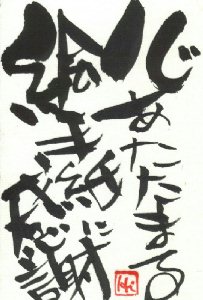 心あたたまる
絵手紙に
感謝